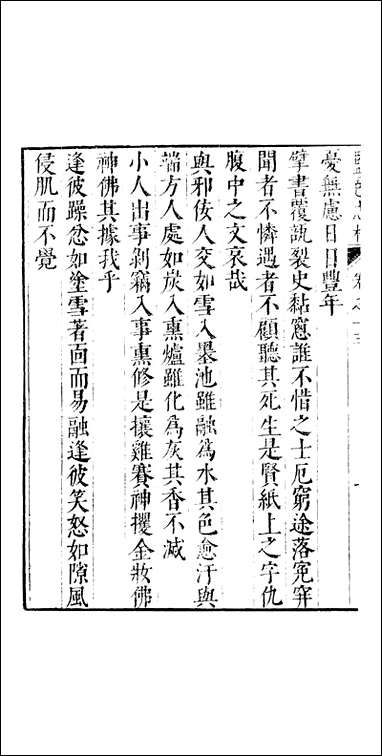 憂無慮日日豐年
擘書覆瓿裂史黏窻誰不惜之士厄窮途落寃穽
聞者不憐遇者不顧聽其死生是賢紙上之字仇
腹中之文哀哉
與邪佞人交如雪入墨池雖融為水其色愈汙與
端方人處如炭入熏爐雖化為灰其香不滅
小人出事剥竊入事熏修是攘雞賽神攫金妝佛
神佛其據我乎
逢彼躁忿如塗雪著面而易融逢彼笑怒如隙風
侵肌而不覺